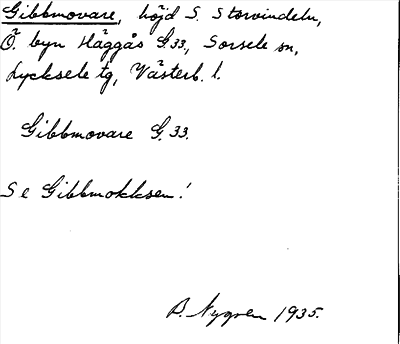 Gibbmovare, höjd S. Storvindeln,
Ö. byn Häggås G.33., Sorsele sn,
Lycksele tg, Västerb. l.
Gibbmovare G.33.
Se Gibbmokksen!
B. Nygren 1935.